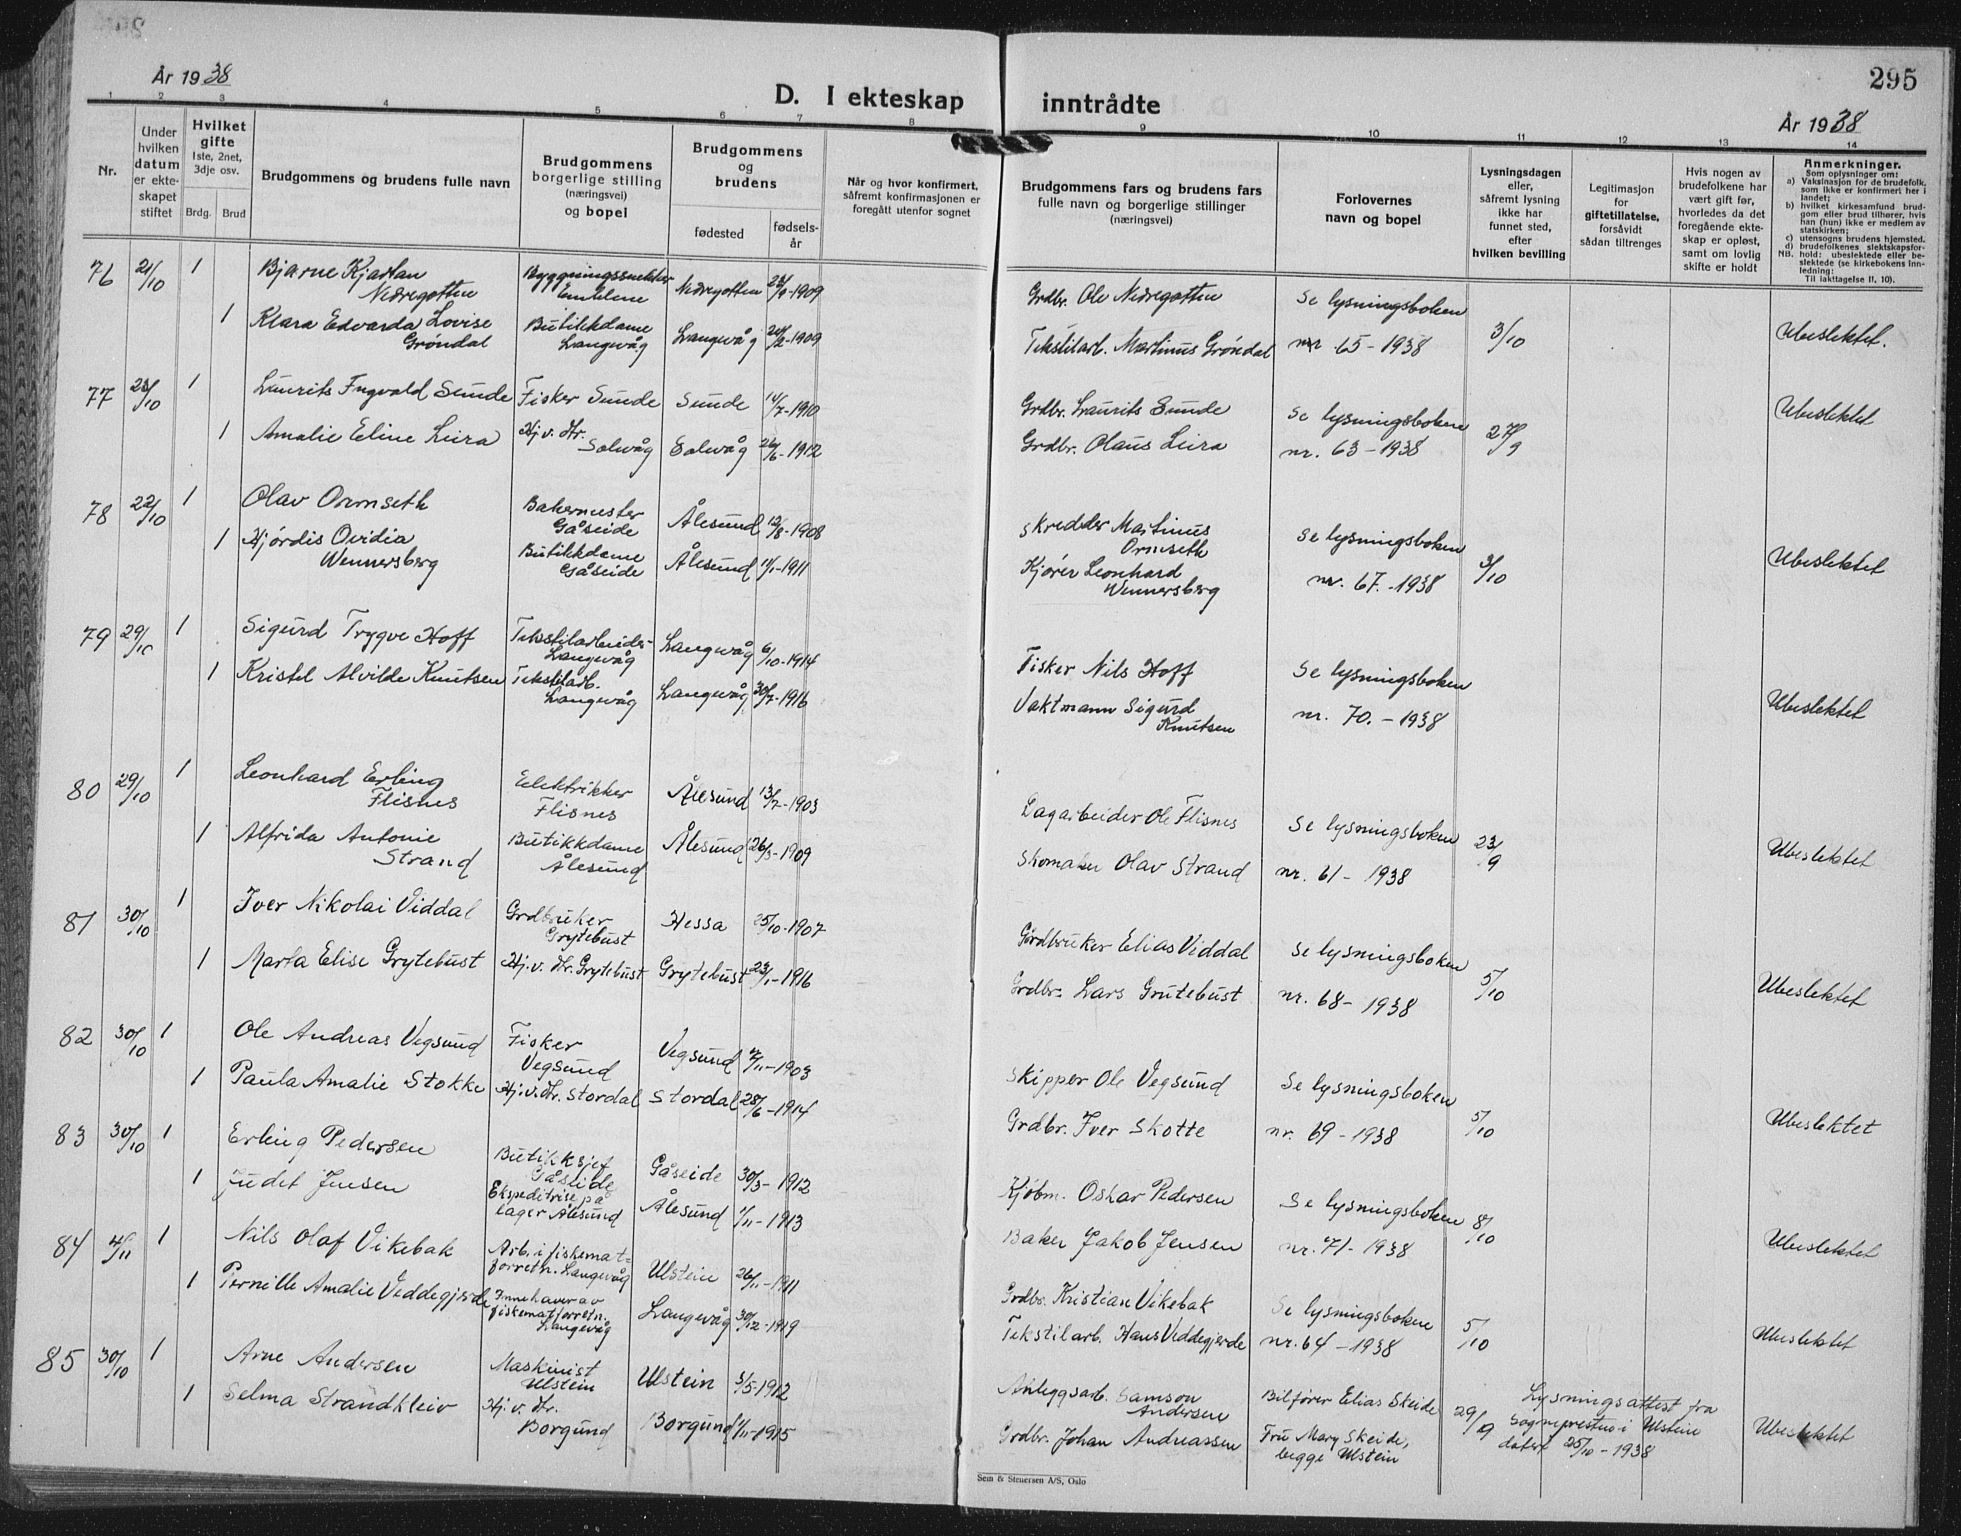 295
År 1938
D. I ekteskap inntrådte
År 1938
1 2 3 4 5 6 7 8 9 10 11 12 13 14
Nr.
Under hvilken datum er ekteskapet stiftet
Hvilket gifte
1ste, 2net, 3dje osv.
Brdg. Brud
Brudgommens og brudens fulle navn
Brudgommens borgerlige stilling (næringsvei) og bopel
Brudgommens og brudens
fødested
fødselsår
Når og hvor konfirmert, såfremt konfirmasjonen er foregått utenfor sognet
Brudgommens fars og brudens fars fulle navn og borgerlige stillinger (næringsvei)
Forlovernes navn og bopel
Lysningsdagen eller, såfremt lysning ikke har funnet sted, efter hvilken bevilling
Legitimasjon for giftetillatelse, forsåvidt sådan tiltrenges
Hvis nogen av brudefolkene har vært gift før, hvorledes da det foregående ekteskap er opløst, samt om lovlig skifte er holdt
Anmerkninger.
Som oplysninger om:
a) Vaksinasjon for de brudefolk, som ikke er konfirmert her i landet;
b) hvilket kirkesamfund brudgom eller brud tilhører, hvis han (hun) ikke er medlem av statskirken;
c) utensogns brudens hjemsted.
d) brudefolkenes slektskapsforhold: ubeslektede eller beslektede (se kirkebokens innledning:
NB.
Til iakttagelse II. 10).
76 21/10 1 Bjarne Kjartan Nedregotten Byggningssnekker Emblene Nedregotten 1909 Grdbr. Ole Nedregotten Se lysningsboken
1 Klara Edvarda Lovise Grøndal Butikkdame Langevåg Langevåg 20/2-1909 Tekstilarb. Martinus Grøndal nr 65-1938 3/10 Ubeslektet.
77 23/10 1 Laurits Ingvald Sunde Fisker Sunde Sunde 14/7-1910 Grdbr. Laurits Sunde Se lysningsboken Ubeslektet
1 Amalie Eline Leira Hj.v. Hr. Solevåg Solevåg 26/6-1912 Grdbr. Olaus Leira nr. 63-1938 27/9
78 22/10 1 Olav Ormseth Bakermester Gåseide Ålesund 12/8-1908 Skredder Martinus Ormseth Se lysningsboken
1 Hjördis Ovidia Wennersberg Butikkdame Gåseide Ålesund 1911 Kjörer Leonhard Wennersberg nr. 67.-1938 3/10 Ubeslektet
79 29/10 1 Sigurd Trygve Hoff Tekstilarbeider Langevåg Langevåg 6/10-1914 Fisker Nils Hoff Se lysningsboken
1 Kristel Alvilde Knutsen Tekstilarb. Langevåg Langevåg 30/7-1916 Vaktmann Sigurd Knutsen nr. 70.-1938 Ubeslektet
80 29/10 1 Leonhard Erling Flisnes Elektrikker Flisnes Ålesund 13/7-1903 Dagarbeider Ole Flisnes Se lysningsboken
1 Alfrida Antonie Strand Butikkdame Ålesund Ålesund 26/3-1909 Skomaker Olav Strand nr. 61-1938 23/9 Ubeslektet
81 30/10 1 Iver Nikolai Viddal Grdbruker Grytebust Hessa 25/10-1907 Gårdbruker Elias Viddal Se lysningsboken
1 Marta Elise Grytebust Hj.v. Hr. Grytebust Grytebust 23/1-1916 Grdbr. Lars Grutebust nr. 68-1938 5/10 Ubeslektet
82 30/10 1 Ole Andreas Vegsund Fisker Vegsund Vegsund 1903 Skipper Ole Vegsund Se lysningsboken
1 Paula Amalie Stokke Hj.v. Hr. Stordal Stordal 28/6-1914 Grdbr. Iver Skotte nr. 69-1938 5/10 Ubeslektet
83 30/10 1 Erling Pedersen Butikksjef Gåseide Gåseide 30/3-1912 Kjöbm. Oskar Pedersen Se lysningsboken
1 Judet Jensen Ekspeditrise på lager Ålesund Ålesund 1/11-1913 Baker Jakob Jensen nr. 71-1938 8/10 Ubeslektet
84 4/11 1 Nils Olaf Vikebak Arb. i fiskematforretn. Langevåg Ulstein 26/11-1911 Grdbr. Kristian Vikebak Se lysningsboken
1 Pernille Amalie Veddegjerde Innehaver av fiskematforretn. Langevåg Langevåg 30/12-1919 Tekstilarb. Hans Veddegjerde nr. 64-1938 5/10 Ubeslektet
85 30/10 1 Arne Andersen Maskinist Ulstein Ulstein 3/5-1912 Anleggsarb. Samson Andersen Bilfører Elias Skeide Lysningsattest fra
1 Selma Strandkleiv Hj.v. Hr. Borgund Borgund 1/11-1915 Grdbr. Johan Andreassen Fru Mary Skeide, begge Ulstein 29/9 Sognepresten i Ulstein datert 25/10-1938 Ubeslektet
Sem & Stenersen A/S, Oslo